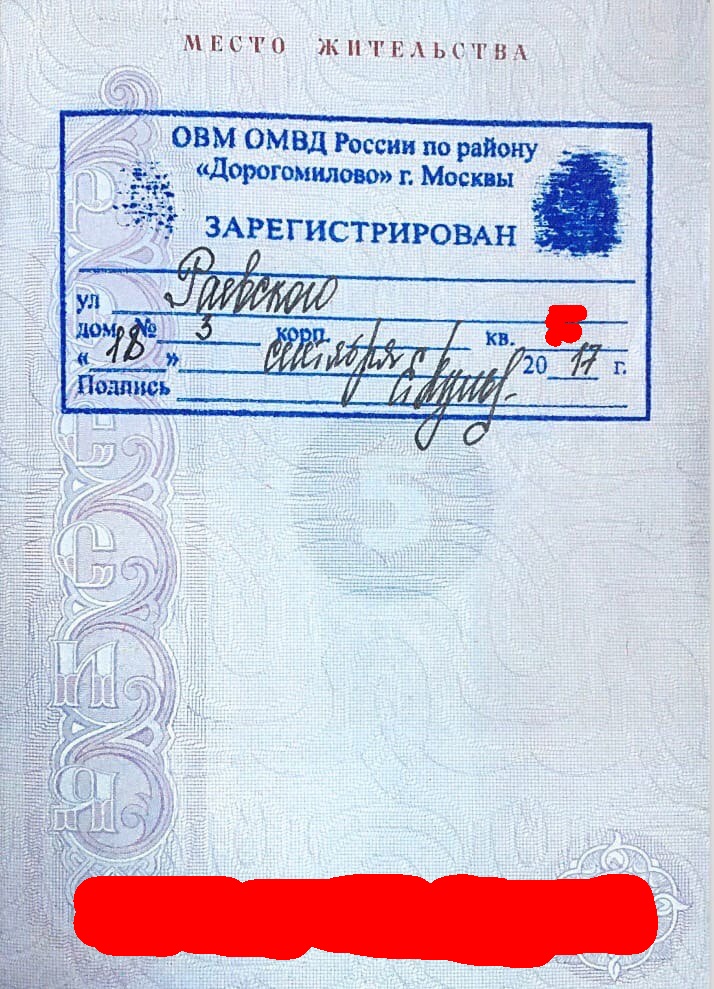 МЕСТО ЖИТЕЛЬСТВА
ОВМ ОМВД России по району
«Дорогомилово» г. Москвы
ЗАРЕГИСТРИРОВАН
ул Раевского
дом № 3 корп. кв.
« 18 » сентября 20 17 г.
Подпись
5
РОССИЯ